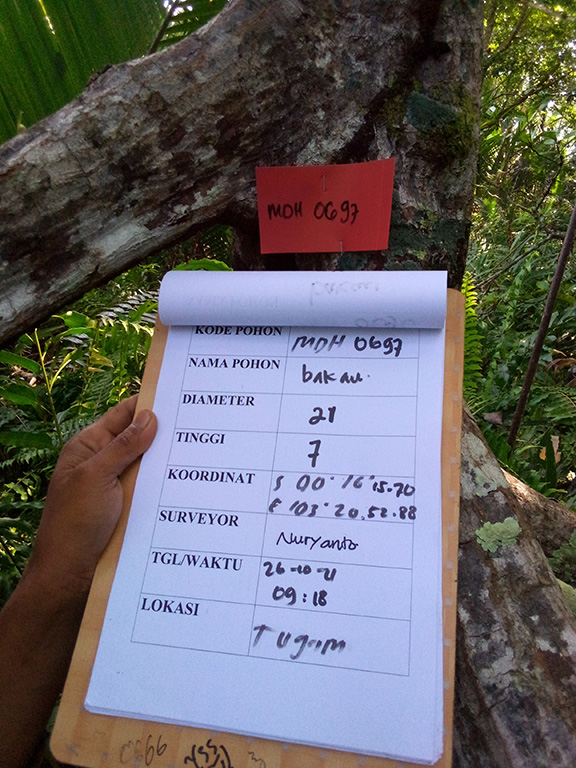 MDH 0697
KODE POHON MDH 0697
NAMA POHON bakau.
DIAMETER 21
TINGGI 7
KOORDINAT S 00° 16' 15.70
E 103° 20, 52.88
SURVEYOR Nuryanto
TGL/WAKTU 26-10-21
09:18
LOKASI Tugim